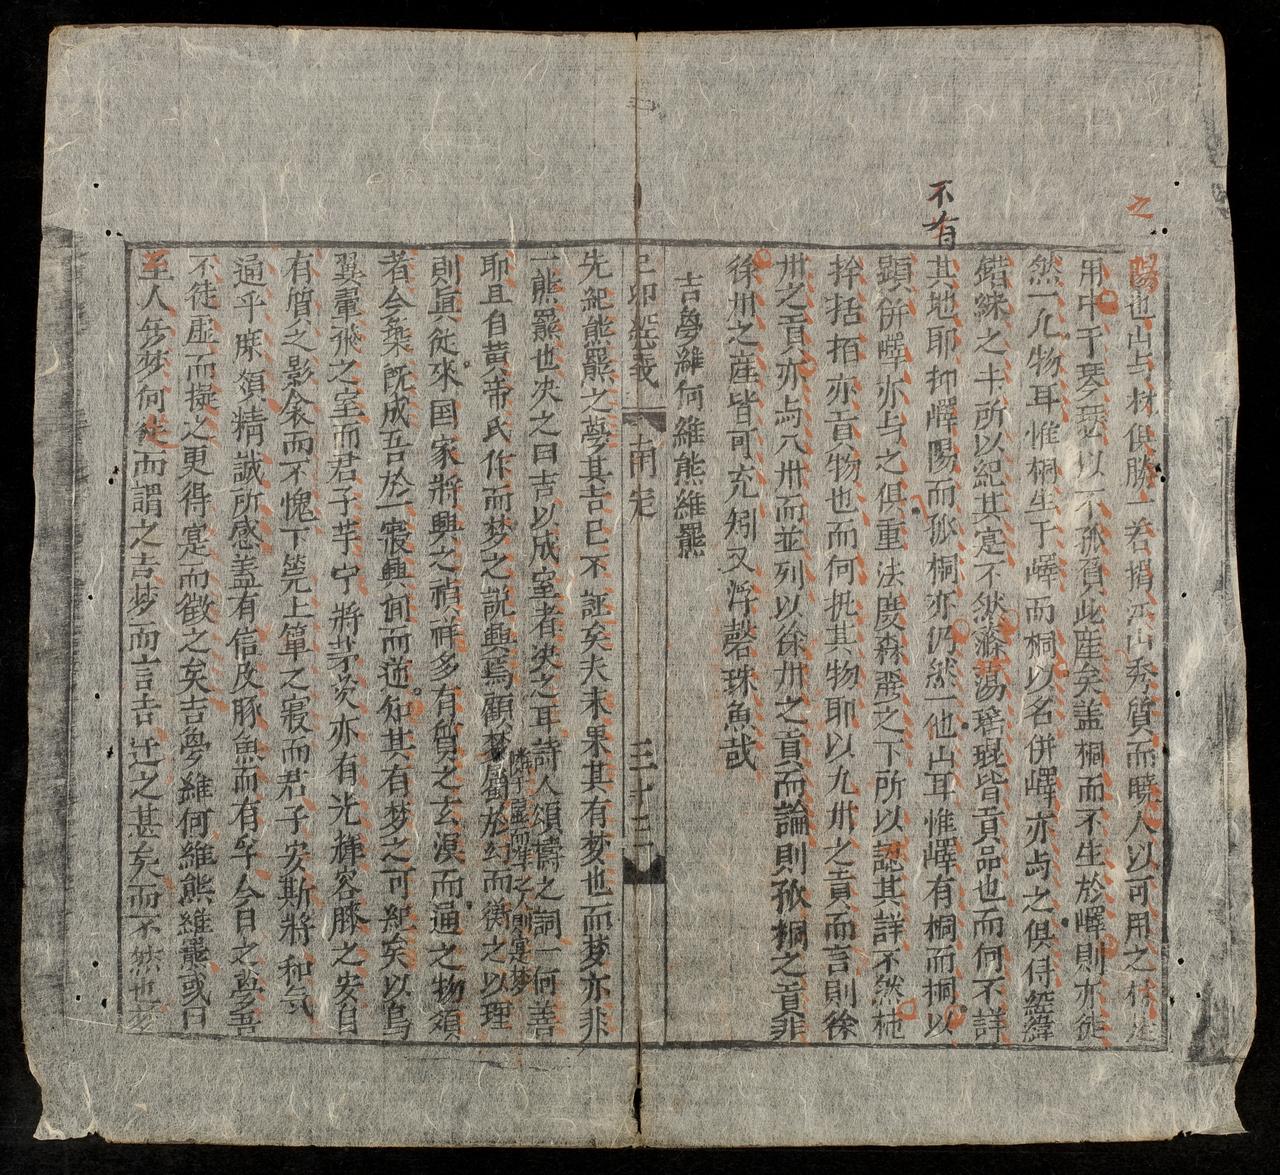 之
陽也山与材俱勝一若揖添山秀質而曉人以可用之材
用中千琴瑟以一不孤負此産矣盖桐而不生於嶧則亦徒
然一凢物耳惟桐生于嶧而桐以名併嶧亦与之俱得經緯
錯綜之十所以紀其寔不然滌蕩瑤琨皆貢品也而何不詳
不有
其地耶抑嶧陽而孤桐亦仍然一他山耳惟嶧有桐而桐以
顕併嶧亦与之俱重法度森嚴之下所以認其詳不然杶
榦括栢亦貢物也而何扺其物耶以九州之貢而言則徐
州之貢亦与八州而並列以徐州之貢而論則孤桐之貢非
徐州之産皆可充矧又浮磬珠魚哉
吉夢維何維熊維羆
己卯經義 南定 三十三
先紀熊羆之夢其吉已不誣矣夫未果其有梦也而梦亦非
一熊羆也决之曰吉以成室者决之耳詩人頌禱之詞一何善
耶且自黄帝氏作而梦之説興焉顧梦属於幻而衡之以理
則眞従來国家將興之禎祥多有質之玄漠而通之物類
者今築既成吾於一寢興間而逆知其有梦之可紀矣以鳥
翼翬飛之室而君子芋寧將茅茨亦有光輝容膝之安自
有質之影衾而不愧下筦上簟之寢而君子安斯將和氣
通乎麋類精誠所感盖有信及豚魚而有孚今日之
不徒虚而擬之更得寔而徴之矣吉夢維何維熊維羆或曰
至人無梦何徒而謂之吉梦而言吉迂之甚矣而不然也